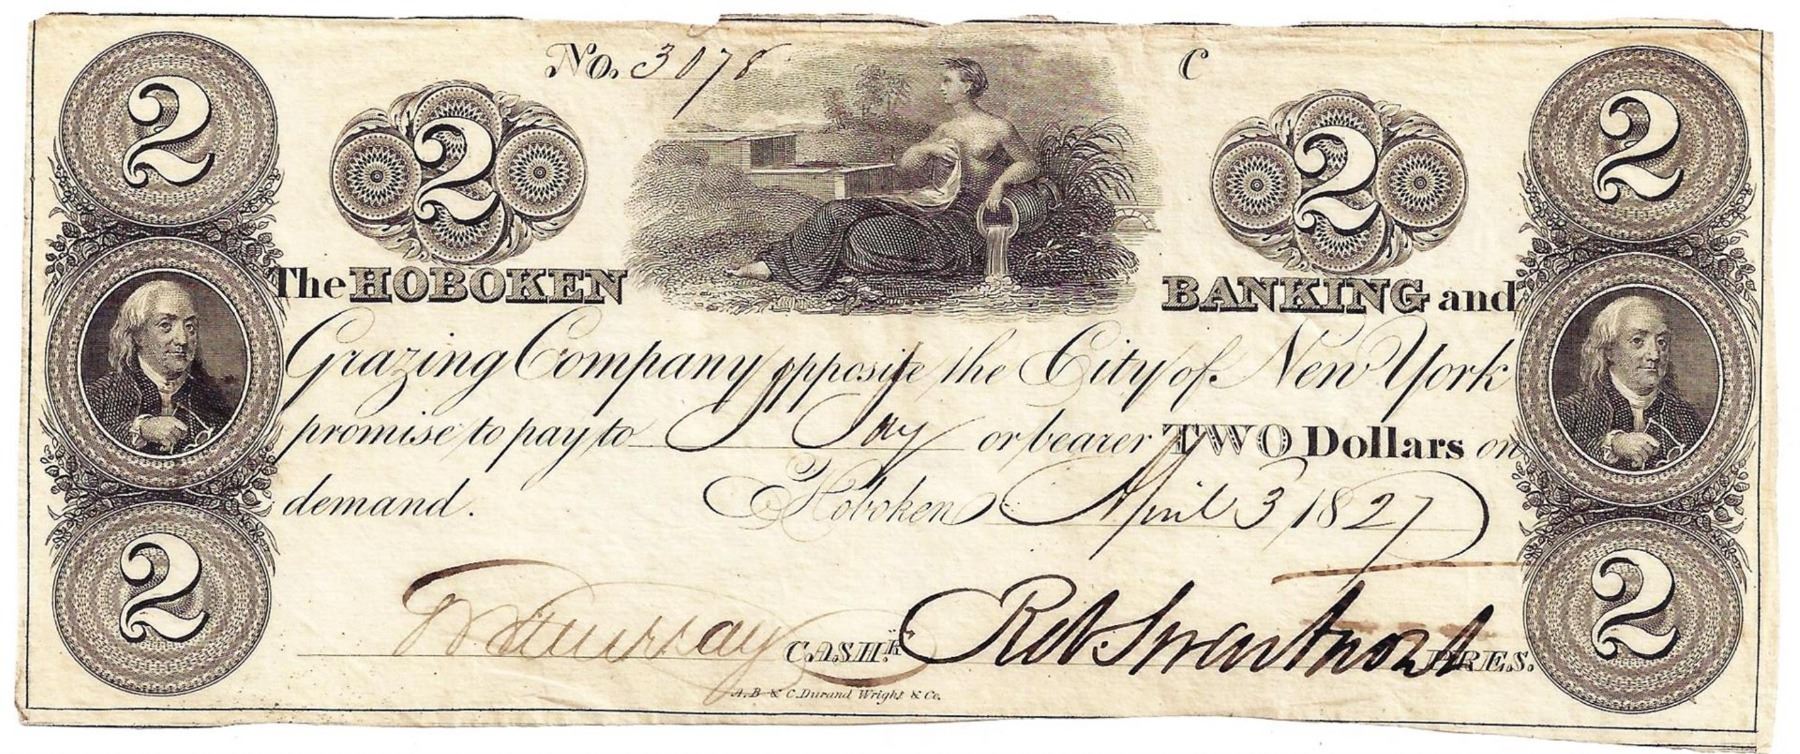 No. 3078 C
2 2 2 2
The HOBOKEN BANKING and
Grazing Company opposite the City of New York
promise to pay to J Jay or bearer TWO Dollars on
demand. Hoboken April 3 1827
2 2
Murray CASHR. Rob Swartwout PRES.
A.B & C. Durand Wright & Co.